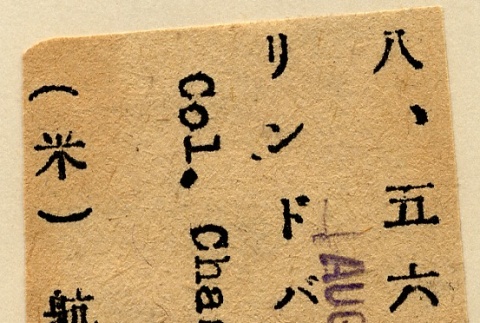 八、五六
リンドバ
Col.
（米）航
AUG